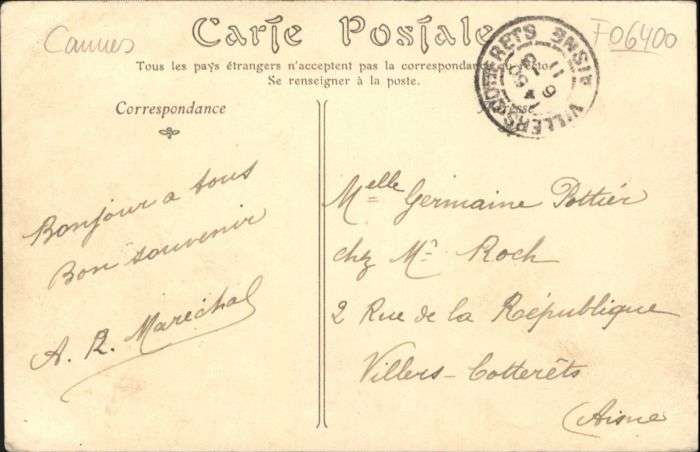 Cannes
F06400
Carte Postale
Tous les pays étrangers n'acceptent pas la correspondance au recto
Se renseigner à la poste.
VILLERS-COTTERETS AISNE
Correspondance
Adresse
Bonjour a tous
Bon souvenir
A. R. Maréchal
Melle Germaine Pottier
chez Mr Roch
2 Rue de la République
Villers-Cotterêts
(Aisne